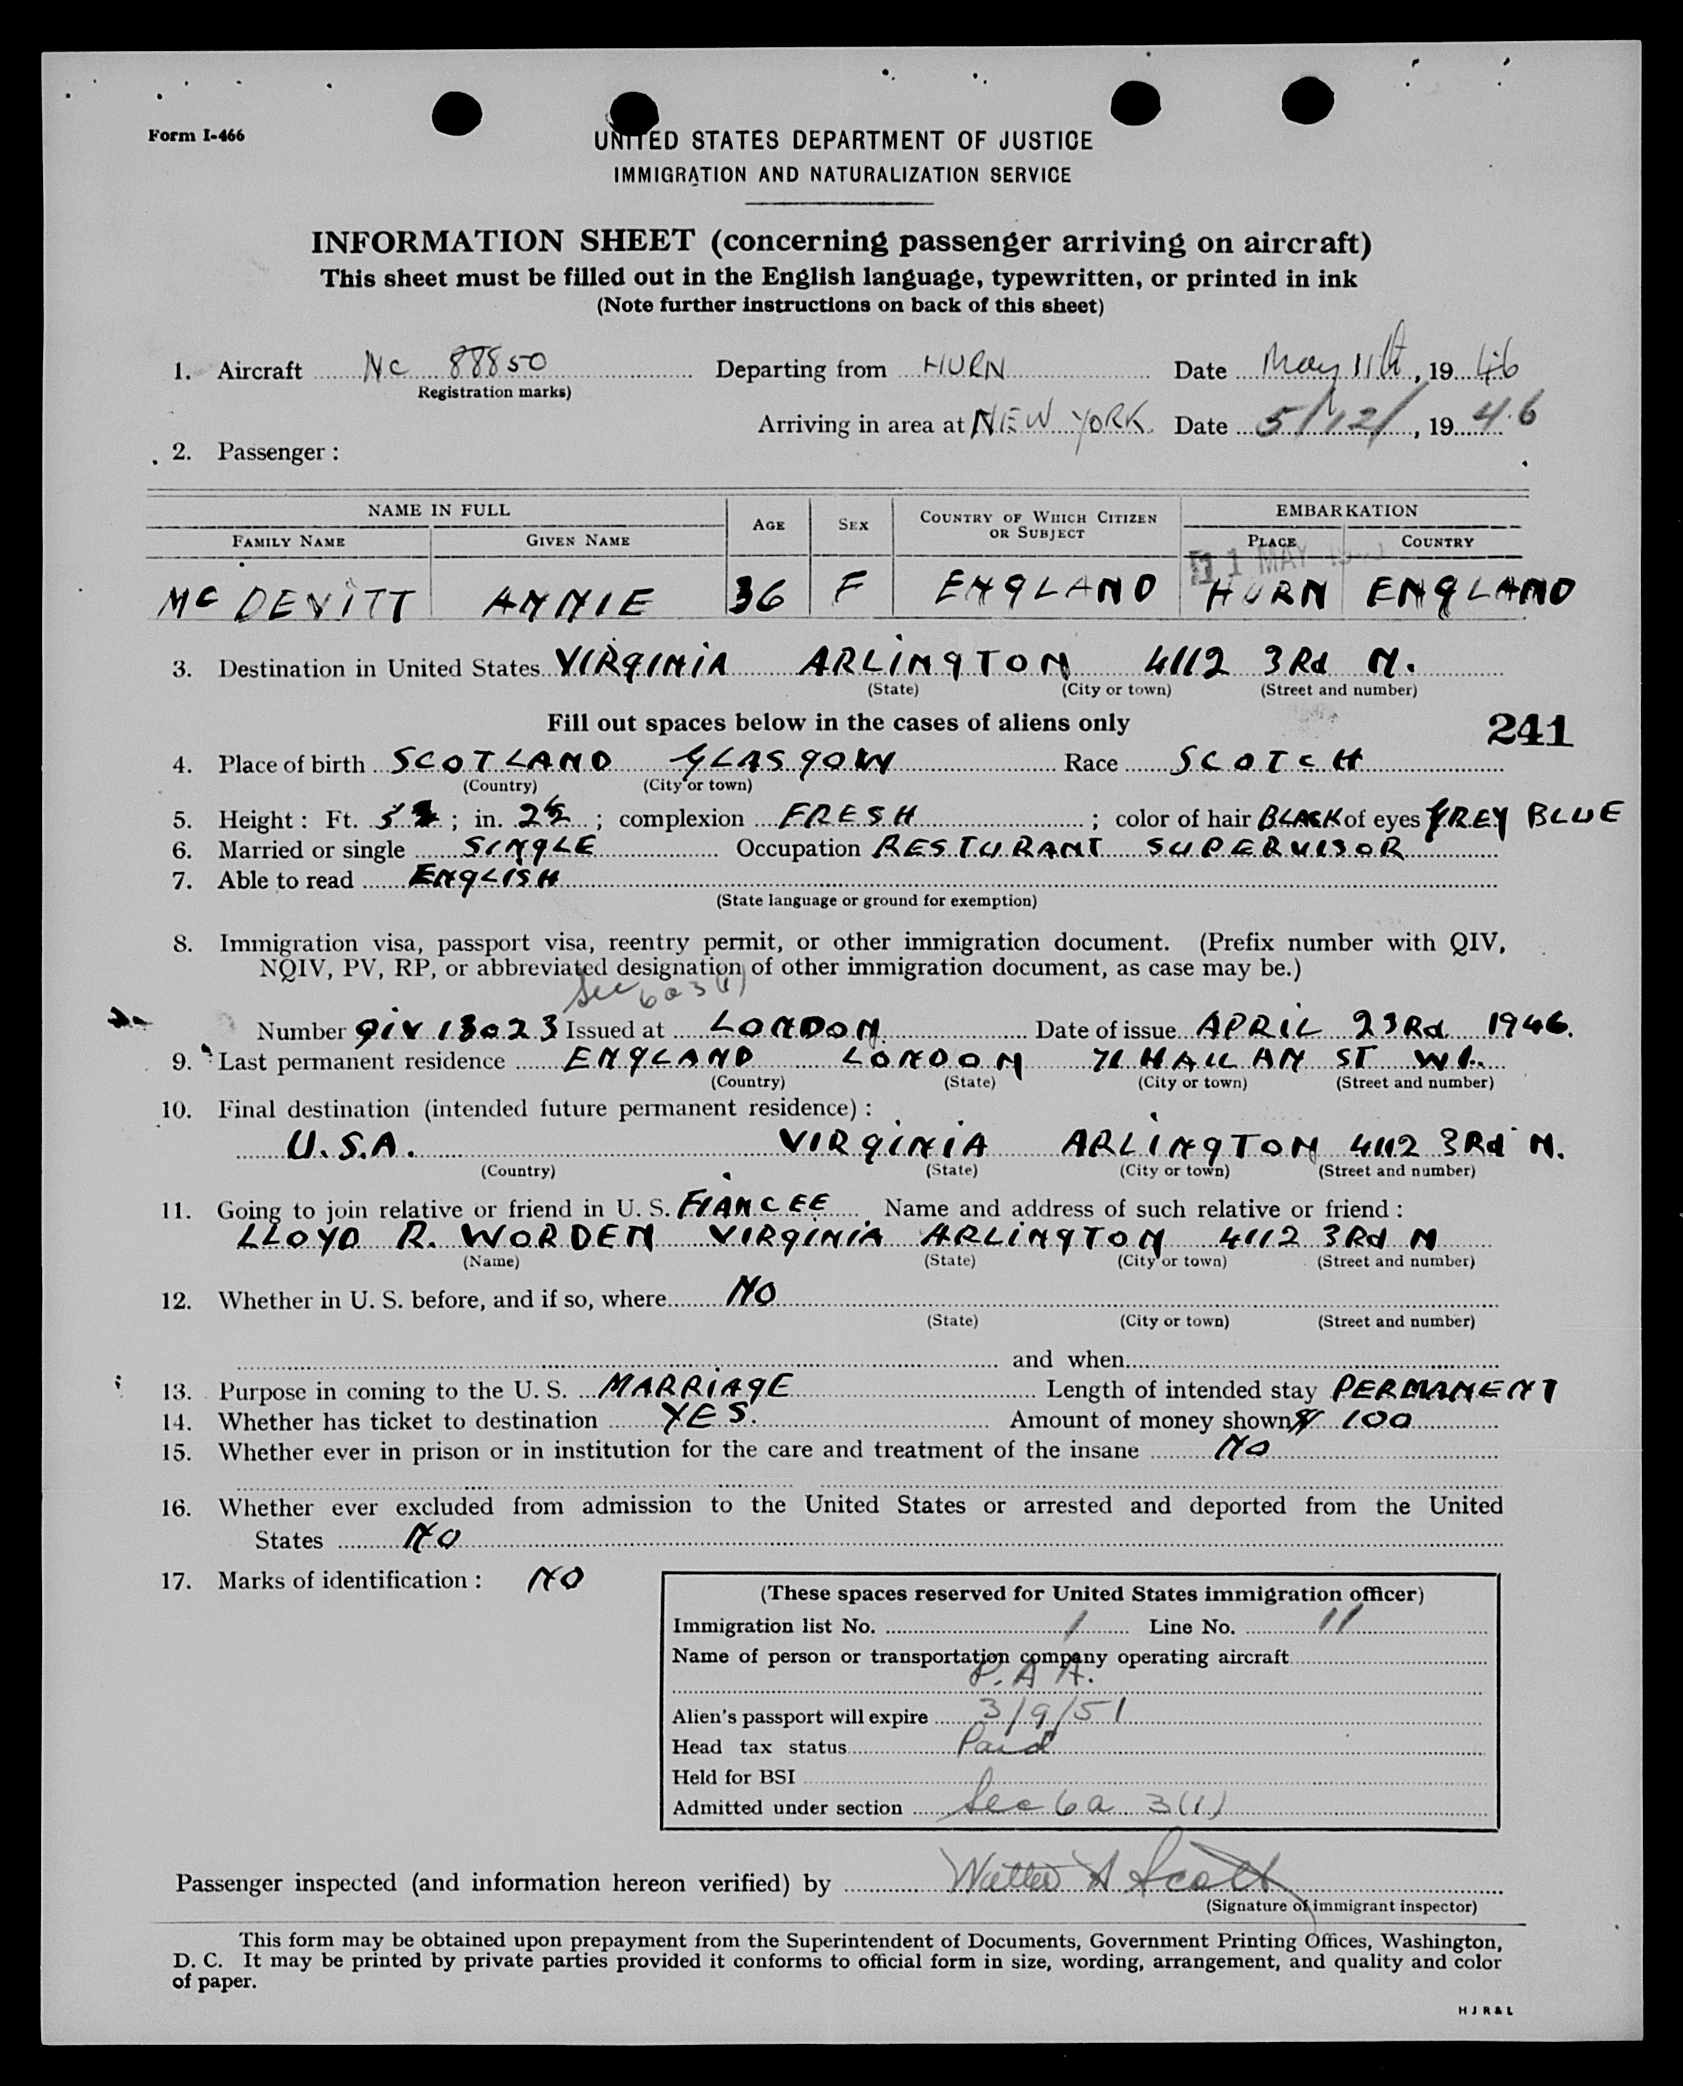 Form I-466
UNITED STATES DEPARTMENT OF JUSTICE
IMMIGRATION AND NATURALIZATION SERVICE
INFORMATION SHEET (concerning passenger arriving on aircraft)
This sheet must be filled out in the English language, typewritten, or printed in ink
(Note further instructions on back of this sheet)
1. Aircraft NC 88850 Departing from HURN Date May 11th, 1946
Registration marks)
Arriving in area at NEW YORK Date 5/12/, 1946
2. Passenger :
NAME IN FULL AGE SEX COUNTRY OF WHICH CITIZEN OR SUBJECT EMBARKATION
FAMILY NAME GIVEN NAME PLACE COUNTRY
11 MAY
MC DEVITT ANNIE 36 F ENGLAND HURN ENGLAND
3. Destination in United States VIRGINIA ARLINGTON 4112 3Rd N.
(State) (City or town) (Street and number)
Fill out spaces below in the cases of aliens only
241
4. Place of birth SCOTLAND GLASGOW Race SCOTCH
(Country) (City or town)
5. Height : Ft. 5 ; in. 2½ ; complexion FRESH ; color of hair BLACK of eyes GREY BLUE
6. Married or single SINGLE Occupation RESTURANT SUPERVISOR
7. Able to read ENGLISH
(State language or ground for exemption)
8. Immigration visa, passport visa, reentry permit, or other immigration document. (Prefix number with QIV,
NQIV, PV, RP, or abbreviated designation of other immigration document, as case may be.)
Sec 6a3(1)
Number QIV 13023 Issued at LONDON Date of issue APRIL 23Rd 1946.
9. Last permanent residence ENGLAND LONDON 71 HALLAN ST W1.
(Country) (State) (City or town) (Street and number)
10. Final destination (intended future permanent residence) :
U.S.A. VIRGINIA ARLINGTON 4112 3Rd N.
(Country) (State) (City or town) (Street and number)
11. Going to join relative or friend in U. S. FIANCEE Name and address of such relative or friend :
LLOYD R. WORDEN VIRGINIA ARLINGTON 4112 3Rd N
(Name) (State) (City or town) (Street and number)
12. Whether in U. S. before, and if so, where NO
(State) (City or town) (Street and number)
and when
13. Purpose in coming to the U. S. MARRIAGE Length of intended stay PERMANENT
14. Whether has ticket to destination YES. Amount of money shown $ 100
15. Whether ever in prison or in institution for the care and treatment of the insane NO
16. Whether ever excluded from admission to the United States or arrested and deported from the United
States NO
17. Marks of identification : NO
(These spaces reserved for United States immigration officer)
Immigration list No. 1 Line No. 11
Name of person or transportation company operating aircraft
P.A.A.
Alien's passport will expire 3/9/51
Head tax status Paid
Held for BSI
Admitted under section Sec 6a 3(1)
Passenger inspected (and information hereon verified) by Walter A Scott
(Signature of immigrant inspector)
This form may be obtained upon prepayment from the Superintendent of Documents, Government Printing Offices, Washington,
D. C. It may be printed by private parties provided it conforms to official form in size, wording, arrangement, and quality and color
of paper.
H J R & L